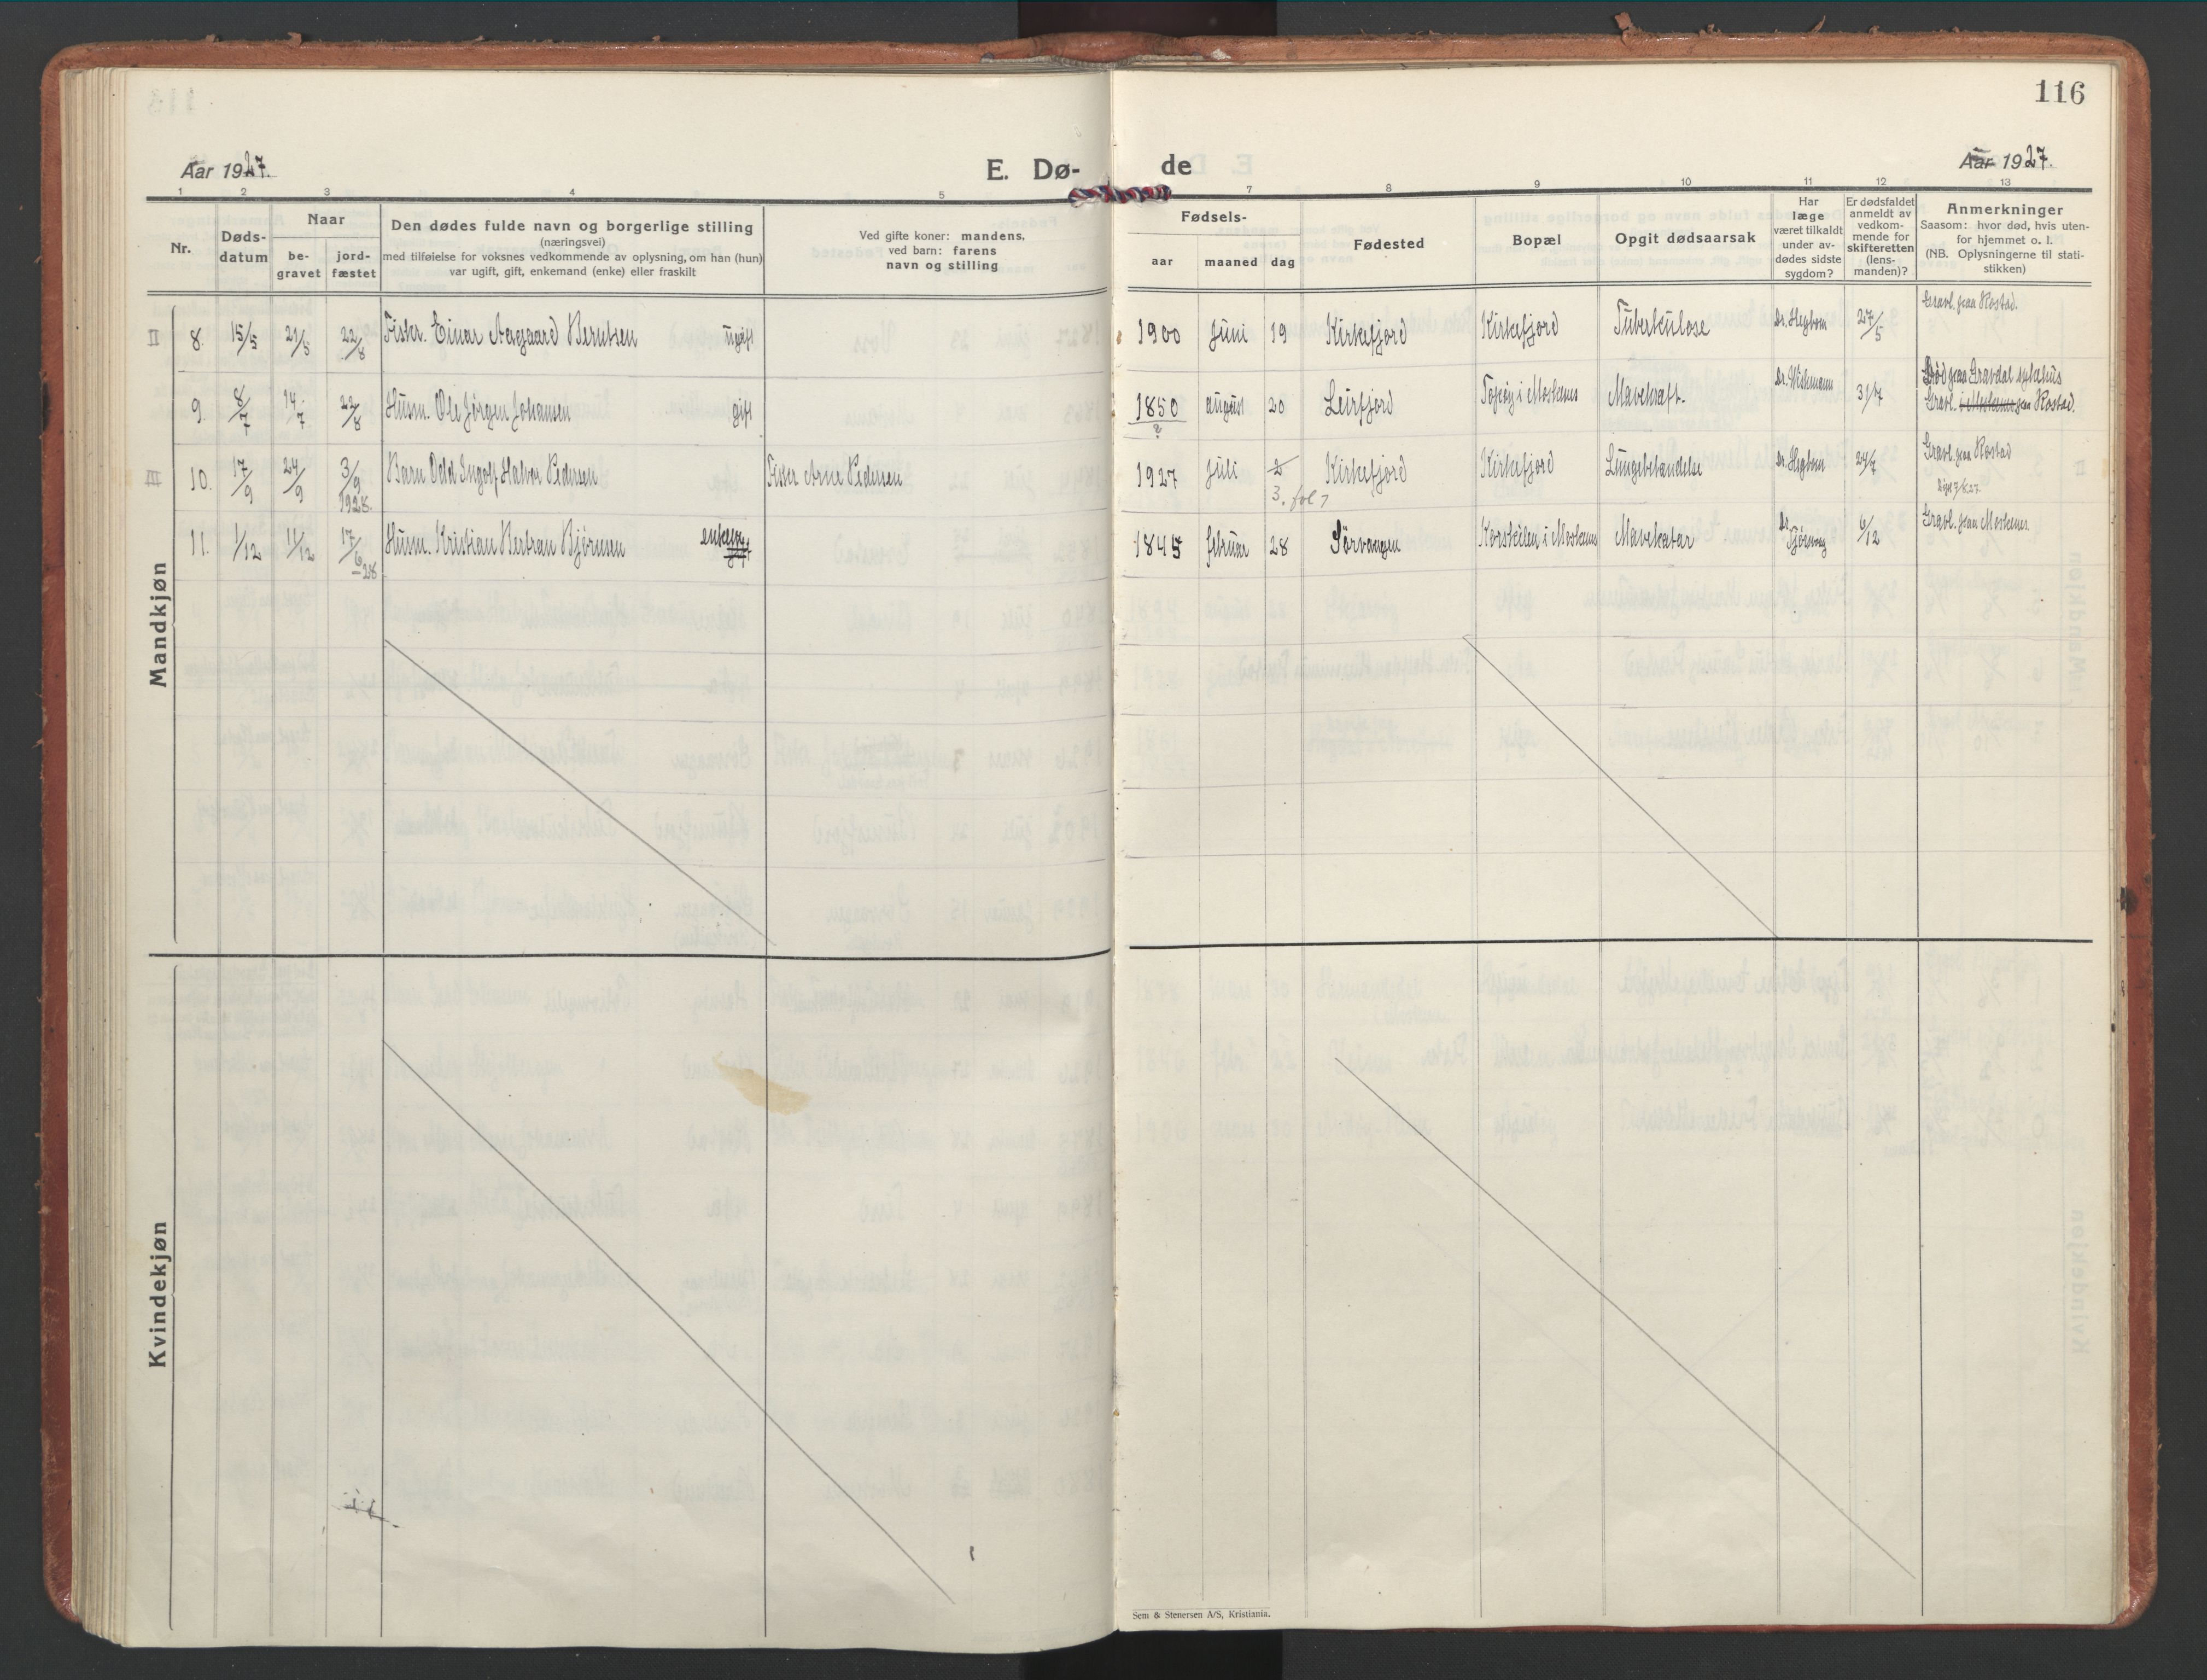 116
Aar 1927.
E. Dø-
de
Aar 1927.
1 2 3 4 5 7 8 9 10 11 12 13
Nr.
Døds-
datum
Naar
be-
gravet
jord-
fæstet
Den dødes fulde navn og borgerlige stilling
(næringsvei)
med tilføielse for voksnes vedkommende av oplysning, om han (hun)
var ugift, gift, enkemand (enke) eller fraskilt
Ved gifte koner: mandens,
ved barn: farens
navn og stilling
Fødsels-
aar
maaned
dag
Fødested
Bopæl
Opgit dødsaarsak
Har
læge
været tilkaldt
under av-
dødes sidste
sygdom?
Er dødsfaldet
anmeldt av
vedkom-
mende for
skifteretten
(lens-
manden)?
Anmerkninger
Saasom: hvor død, hvis uten-
for hjemmet o. l.
(NB. Oplysningerne til stati-
stikken)
Mandkjøn
II 8. 15/5 21/5 22/8 Fisker. Einar Aasgaard Berntsen ugift 1900 Juni 19 Kirkefjord Kirkefjord Tuberkulose Dr. Hegbom 27/5 Gravl. paa Rostad.
9. 8/7 14/7 22/8 Husm. Ole Jørgen Johansen gift 1850 ? august 20 Leirfjord i Moskenes Mavekræft. 31/7 Død paa Gravdal sykehus
Gravl. i Moskenes paa Rostad.
III 10. 17/9 24/9 3/9 1928. Barn Odd Ingolf Halvor Pedersen Fisker Arne Pedersen 1927 Juli 2 Kirkefjord Kirkefjord Lungebetændelse Dr. Hegbom 24/7 Gravl. paa Rostad
3. fol 7
11. 1/12 11/12 17/6 -28 Husm. Kristian Bertran Bjørnsen gift 1845 februar 28 Sørvaagen i Moskenes Mavekatar Dr. 6/12 Gravl. paa Moskenes.
Kvindekjøn
Sem & Stenersen A/S, Kristiania.